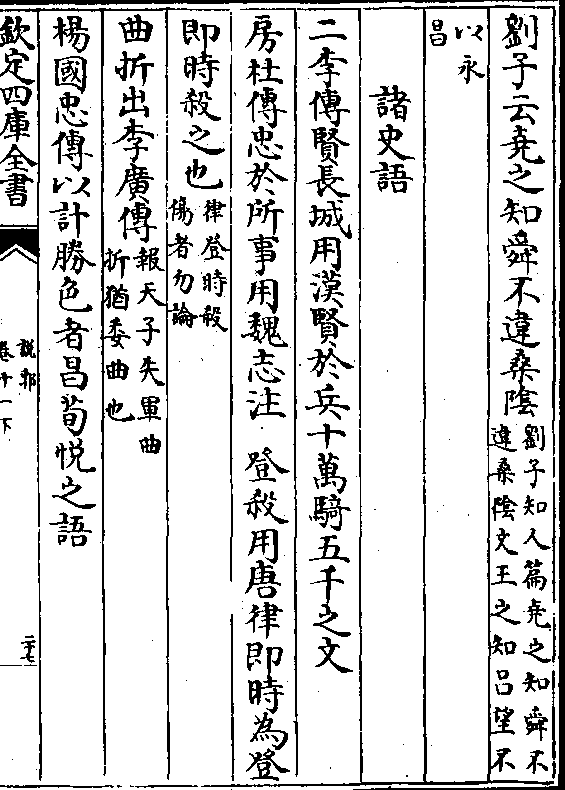 劉子云堯之知舜不違桑陰劉子知人篇堯之知舜不
違桑陰文王之知呂望不
以永
昌
諸史語
二李傳賢長城用漢賢於兵十萬騎五千之文
房杜傳忠於所事用魏志注 登殺用唐律即時為登
即時殺之也律登時殺
傷者勿論
曲折出李廣傳報天子失軍曲
折猶委曲也
楊國忠傳以計勝色者昌荀悅之語
欽定四庫全書
說郛
卷十一下
二十七